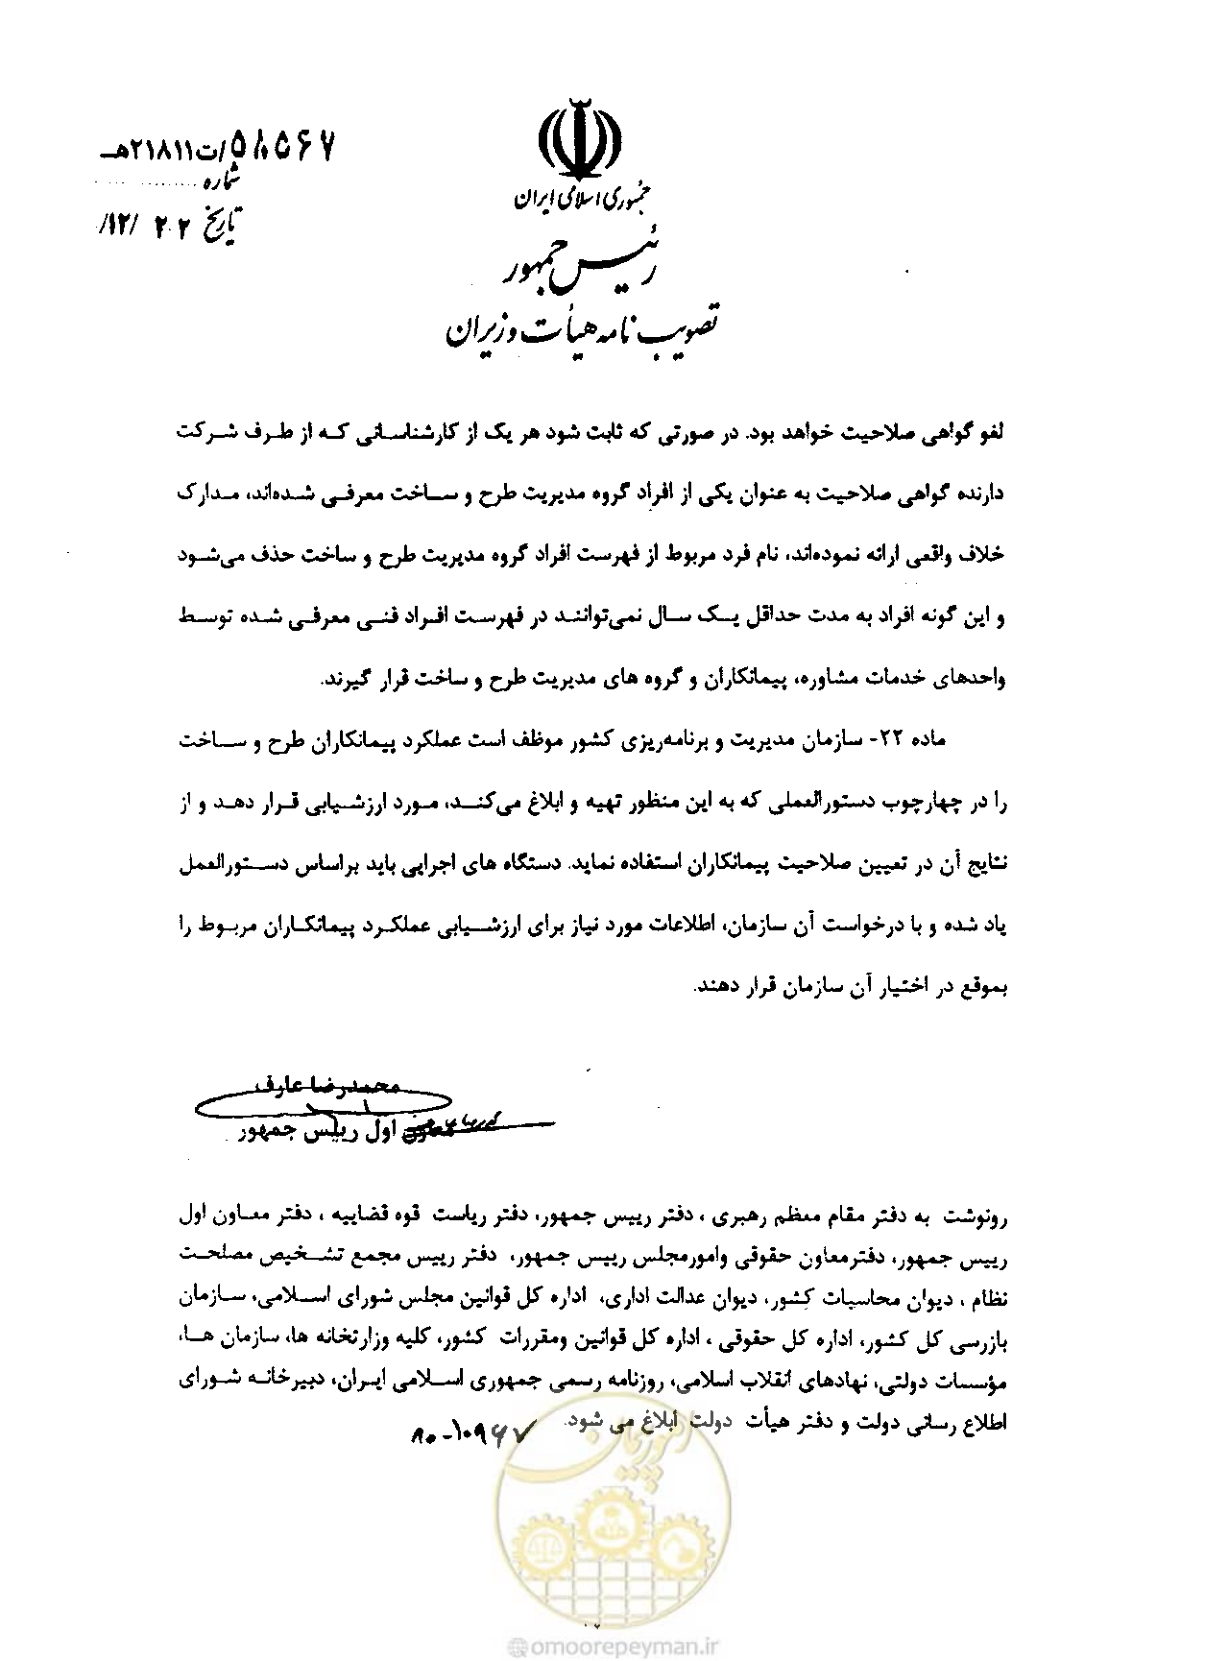 ۵۸۵۶۷/ت۲۱۸۱۱هـ
شماره
تاریخ ۲۰۲ /۱۲/
جمهوری اسلامی ایران
رئیس جمهور
تصویب نامه هیأت وزیران
لغو گواهی صلاحیت خواهد بود. در صورتی که ثابت شود هر یک از کارشناسانی که از طرف شرکت
دارنده گواهی صلاحیت به عنوان یکی از افراد گروه مدیریت طرح و ساخت معرفی شده‌اند، مدارک
خلاف واقعی ارائه نموده‌اند، نام فرد مربوط از فهرست افراد گروه مدیریت طرح و ساخت حذف می‌شود
و این گونه افراد به مدت حداقل یک سال نمی‌توانند در فهرست افراد فنی معرفی شده توسط
واحدهای خدمات مشاوره، پیمانکاران و گروه های مدیریت طرح و ساخت قرار گیرند.
ماده ۲۲- سازمان مدیریت و برنامه‌ریزی کشور موظف است عملکرد پیمانکاران طرح و ساخت
را در چهارچوب دستورالعملی که به این منظور تهیه و ابلاغ می‌کند، مورد ارزشیابی قرار دهد و از
نتایج آن در تعیین صلاحیت پیمانکاران استفاده نماید. دستگاه های اجرایی باید براساس دستورالعمل
یاد شده و با درخواست آن سازمان، اطلاعات مورد نیاز برای ارزشیابی عملکرد پیمانکاران مربوط را
بموقع در اختیار آن سازمان قرار دهند.
محمدرضا عارف
معاون اول رییس جمهور
رونوشت به دفتر مقام معظم رهبری ، دفتر رییس جمهور، دفتر ریاست قوه قضاییه ، دفتر معاون اول
رییس جمهور، دفترمعاون حقوقی وامورمجلس رییس جمهور، دفتر رییس مجمع تشخیص مصلحت
نظام ، دیوان محاسبات کشور، دیوان عدالت اداری، اداره کل قوانین مجلس شورای اسلامی، سازمان
بازرسی کل کشور، اداره کل حقوقی ، اداره کل قوانین ومقررات کشور، کلیه وزارتخانه ها، سازمان ها،
مؤسسات دولتی، نهادهای انقلاب اسلامی، روزنامه رسمی جمهوری اسلامی ایران، دبیرخانه شورای
اطلاع رسانی دولت و دفتر هیأت دولت ابلاغ می شود.
۸۰-۱۰۹۶۷
امور پیمان
@omoorepeyman.ir